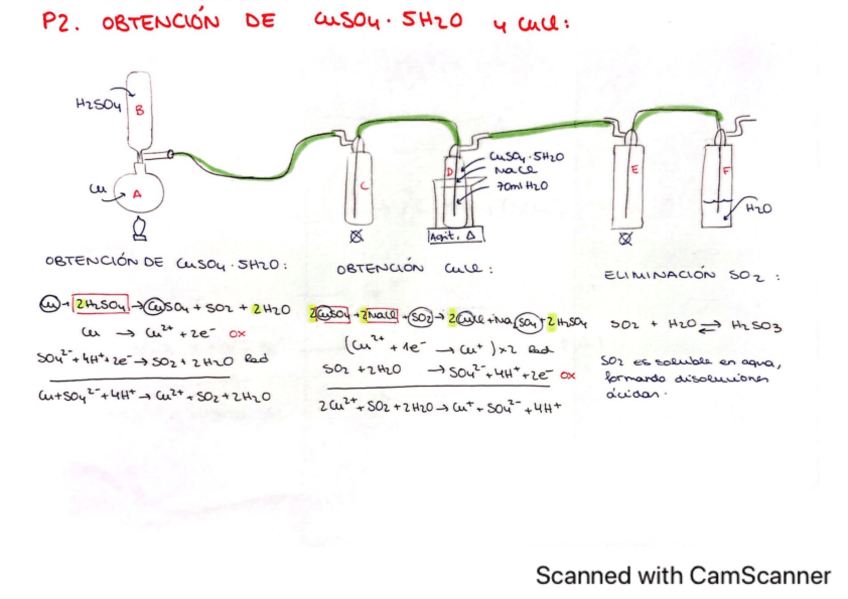 P2. OBTENCIÓN DE CuSO4 · 5H2O y CuCl:
H2SO4
B
Cu
A
C
D
CuSO4 · 5H2O
NaCl
70ml H2O
Agit. Δ
E
F
H2O
OBTENCIÓN DE CuSO4 · 5H2O:
Cu + 2H2SO4 → CuSO4 + SO2 + 2H2O
Cu → Cu2+ + 2e- ox
SO4 2- + 4H+ + 2e- → SO2 + 2H2O Red
Cu + SO4 2- + 4H+ → Cu2+ + SO2 + 2H2O
OBTENCIÓN CuCl:
2CuSO4 + 2NaCl + SO2 → 2CuCl + Na2SO4 + 2H2SO4
(Cu2+ + 1e- → Cu+) x2 Red
SO2 + 2H2O → SO4 2- + 4H+ + 2e- ox
2Cu2+ + SO2 + 2H2O → Cu+ + SO4 2- + 4H+
ELIMINACIÓN SO2:
SO2 + H2O ⇌ H2SO3
SO2 es soluble en agua,
formando disoluciones
ácidas.
Scanned with CamScanner